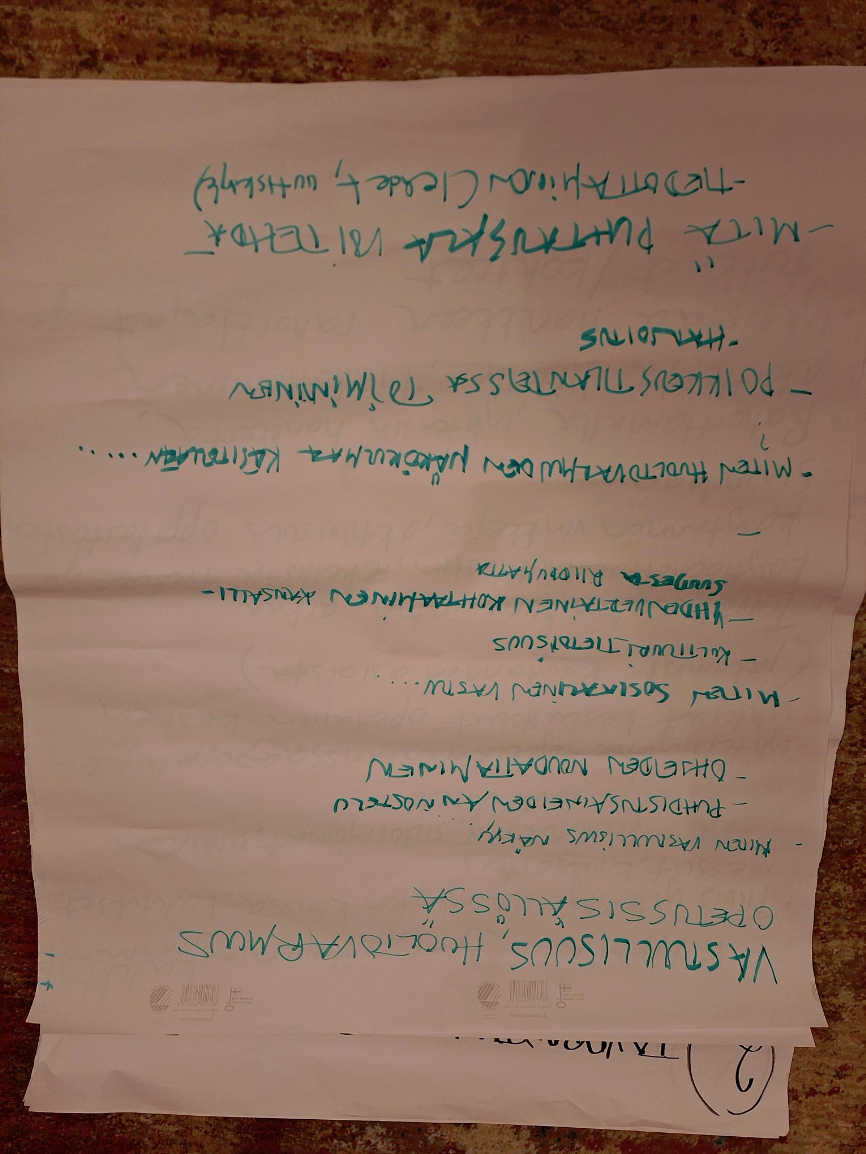 VASTUULLISUUS, HUOLTOVARMUUS
OPETUSSISÄLLÖSSÄ
- MITEN VASTUULLISUUS NÄKYY....
- PUHDISTUSAINEIDEN ANNOSTELU
- OHJEIDEN NOUDATTAMINEN
- MITEN SOSIAALINEN VASTUU.....
- KULTTUURITIETOISUUS
- YHDENVERTAINEN KOHTAAMINEN KANSALLI-
SUUDESTA RIIPPUMATTA
-
- MITEN HUOLTOVARMUUDEN NÄKÖKULMAA KÄSITELLÄÄN.....
?
- POIKKEUSTILANTEISSA TOIMIMINEN
- HARJOITUS
- MITÄ PUHTAUSALA VOI TEHDÄ
- TIEDOTTAMINEN (lehdet, uutiskirje)
2